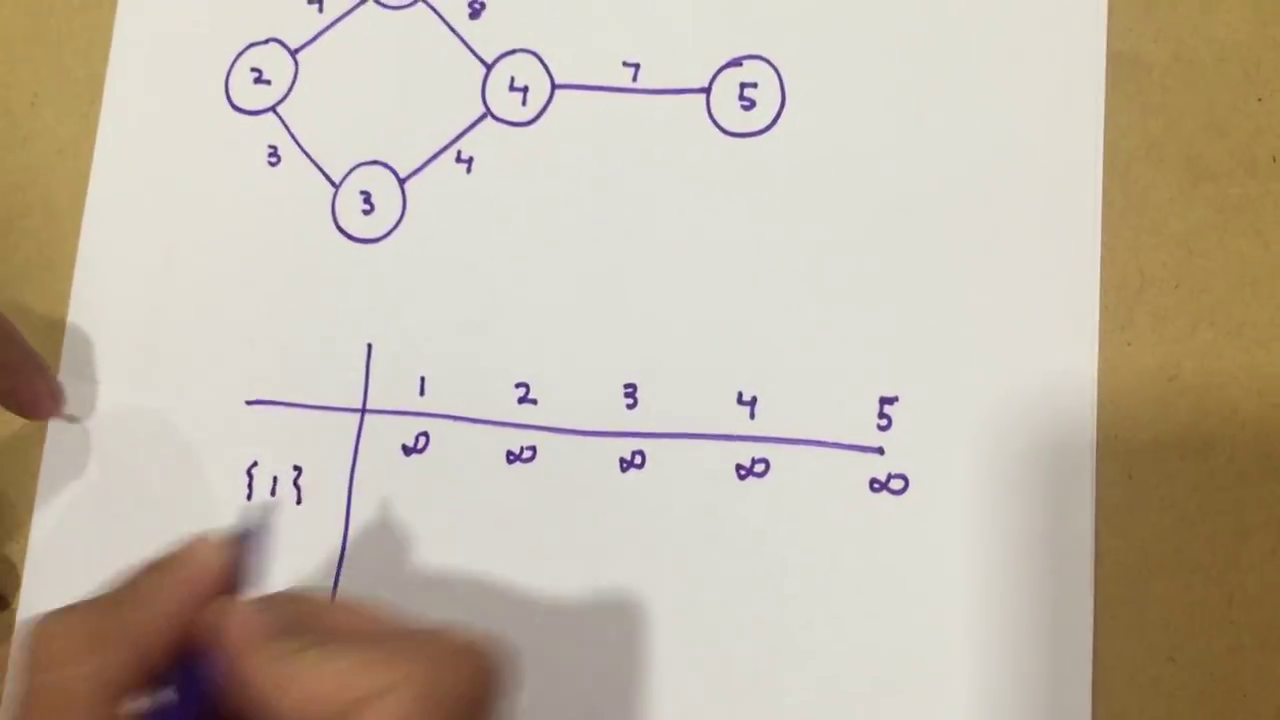 8
2 4 7 5
3 4
3
1 2 3 4 5
∞ ∞ ∞ ∞ ∞
{1}